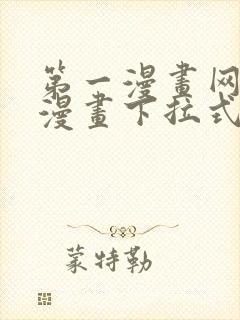 第一漫畫网
漫畫下拉式
蒙特勒